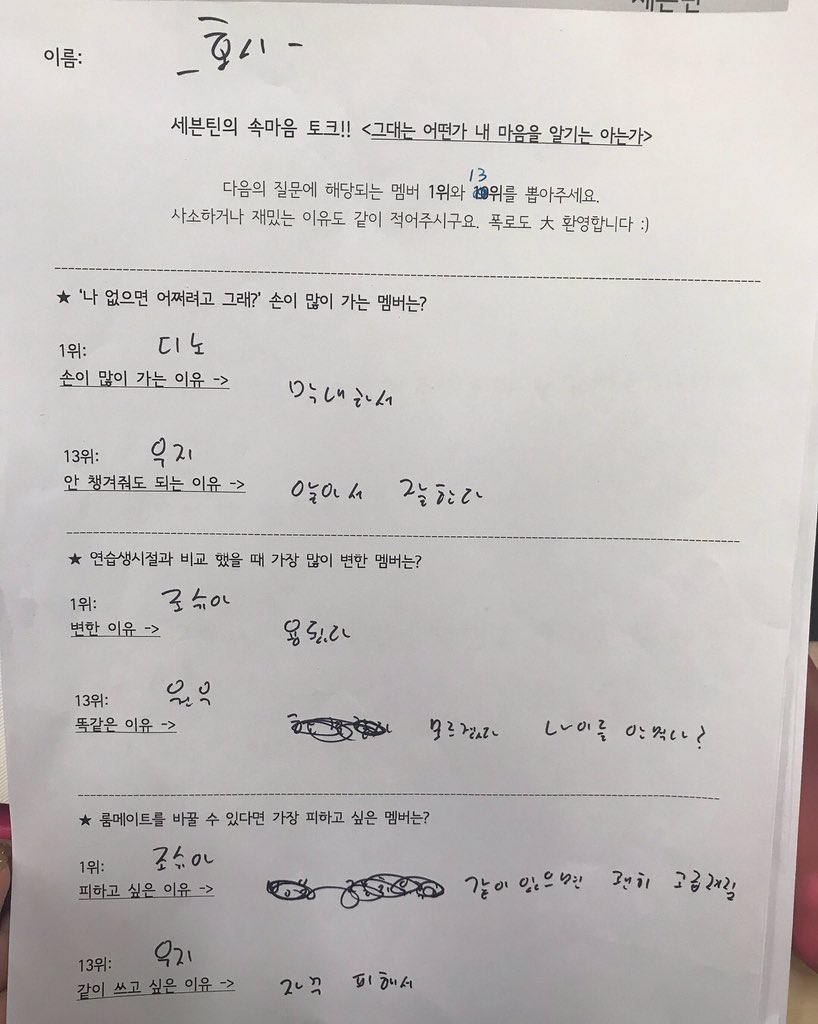 세븐틴
이름: 호시
세븐틴의 속마음 토크!! <그대는 어떤가 내 마음을 알기는 아는가>
13
다음의 질문에 해당되는 멤버 1위와 위를 뽑아주세요.
사소하거나 재밌는 이유도 같이 적어주시구요. 폭로도 大 환영합니다 :)
★ '나 없으면 어쩌려고 그래?' 손이 많이 가는 멤버는?
1위: 디노
손이 많이 가는 이유 -> 막내라서
13위: 우지
안 챙겨줘도 되는 이유 -> 알아서 잘한다
★ 연습생시절과 비교 했을 때 가장 많이 변한 멤버는?
1위: 조슈아
변한 이유 -> 용됐다
13위: 원우
똑같은 이유 -> 모르겠다 나이를 안먹나?
★ 룸메이트를 바꿀 수 있다면 가장 피하고 싶은 멤버는?
1위: 조슈아
피하고 싶은 이유 -> 같이 있으면 괜히 고급져짐
13위: 우지
같이 쓰고 싶은 이유 -> 자꾸 피해서